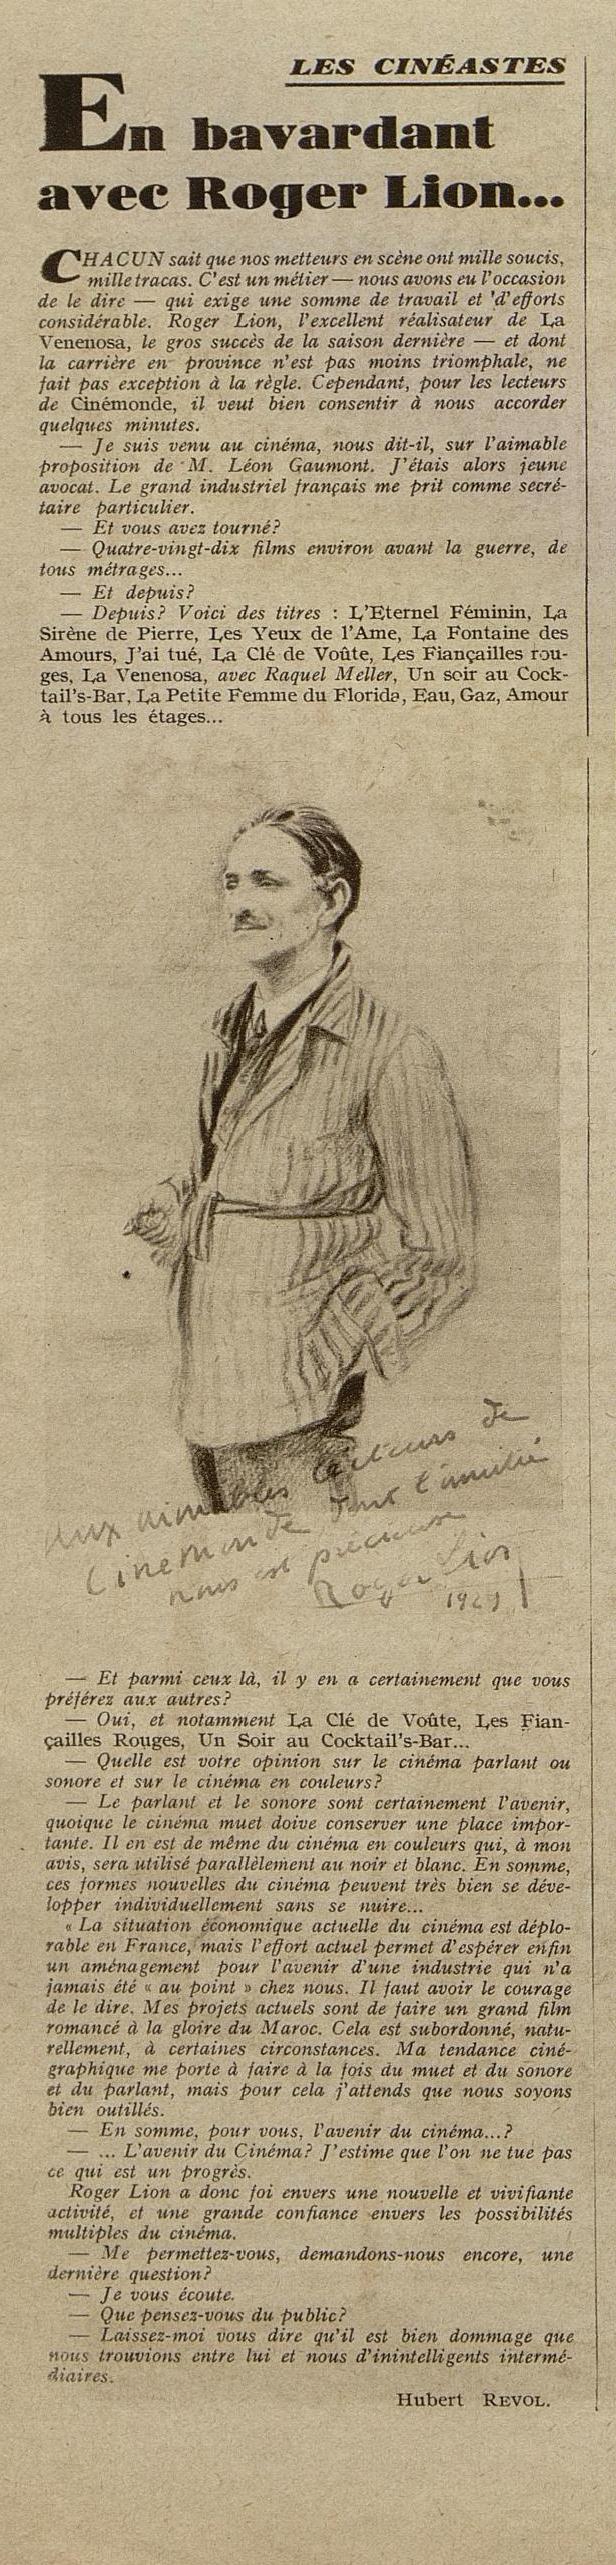 LES CINÉASTES
En bavardant
avec Roger Lion...
CHACUN sait que nos metteurs en scène ont mille soucis,
mille tracas. C'est un métier — nous avons eu l'occasion
de le dire — qui exige une somme de travail et 'd'efforts
considérable. Roger Lion, l'excellent réalisateur de La
Venenosa, le gros succès de la saison dernière — et dont
la carrière en province n'est pas moins triomphale, ne
fait pas exception à la règle. Cependant, pour les lecteurs
de Cinémonde, il veut bien consentir à nous accorder
quelques minutes.
— Je suis venu au cinéma, nous dit-il, sur l'aimable
proposition de M. Léon Gaumont. J'étais alors jeune
avocat. Le grand industriel français me prit comme secré-
taire particulier.
— Et vous avez tourné?
— Quatre-vingt-dix films environ avant la guerre, de
tous métrages...
— Et depuis?
— Depuis? Voici des titres : L'Eternel Féminin, La
Sirène de Pierre, Les Yeux de l'Ame, La Fontaine des
Amours, J'ai tué, La Clé de Voûte, Les Fiançailles rou-
ges, La Venenosa, avec Raquel Meller, Un soir au Cock-
tail's-Bar, La Petite Femme du Florida, Eau, Gaz, Amour
à tous les étages...
Aux aimables lecteurs de
Cinémonde dont l'amitié
nous est précieuse
Roger Lion
1929
— Et parmi ceux là, il y en a certainement que vous
préférez aux autres?
— Oui, et notamment La Clé de Voûte, Les Fian-
çailles Rouges, Un Soir au Cocktail's-Bar...
— Quelle est votre opinion sur le cinéma parlant ou
sonore et sur le cinéma en couleurs?
— Le parlant et le sonore sont certainement l'avenir,
quoique le cinéma muet doive conserver une place impor-
tante. Il en est de même du cinéma en couleurs qui, à mon
avis, sera utilisé parallèlement au noir et blanc. En somme,
ces formes nouvelles du cinéma peuvent très bien se déve-
lopper individuellement sans se nuire...
« La situation économique actuelle du cinéma est déplo-
rable en France, mais l'effort actuel permet d'espérer enfin
un aménagement pour l'avenir d'une industrie qui n'a
jamais été « au point » chez nous. Il faut avoir le courage
de le dire. Mes projets actuels sont de faire un grand film
romancé à la gloire du Maroc. Cela est subordonné, natu-
rellement, à certaines circonstances. Ma tendance ciné-
graphique me porte à faire à la fois du muet et du sonore
et du parlant, mais pour cela j'attends que nous soyons
bien outillés.
— En somme, pour vous, l'avenir du cinéma...?
— ... L'avenir du Cinéma? J'estime que l'on ne tue pas
ce qui est un progrès.
Roger Lion a donc foi envers une nouvelle et vivifiante
activité, et une grande confiance envers les possibilités
multiples du cinéma.
— Me permettez-vous, demandons-nous encore, une
dernière question?
— Je vous écoute.
— Que pensez-vous du public?
— Laissez-moi vous dire qu'il est bien dommage que
nous trouvions entre lui et nous d'inintelligents intermé-
diaires.
Hubert REVOL.